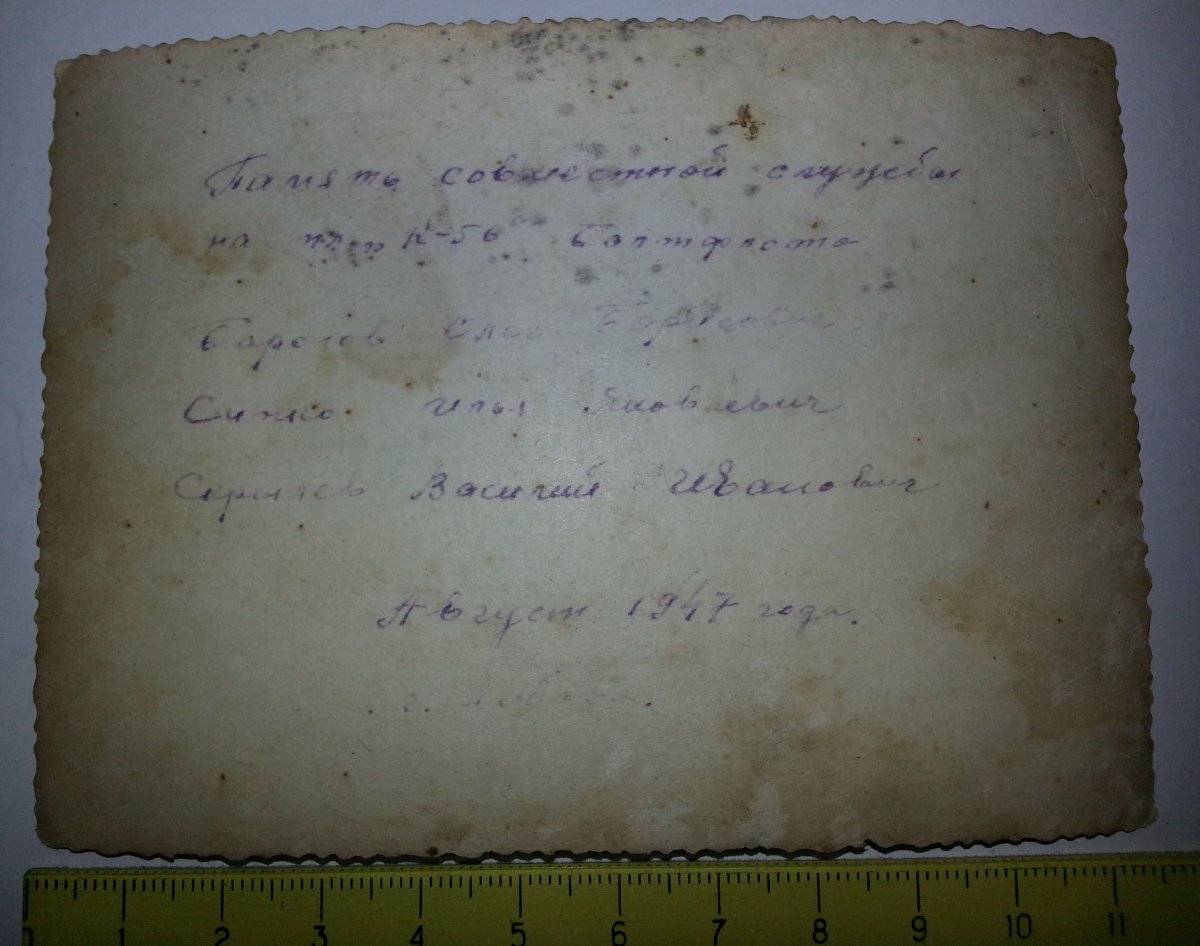 Память совместной службы
на пл „К-56“ Балтфлота
Борисович
Илья Яковлевич
Василий Иванович
Август 1947 года.
г.
0 1 2 3 4 5 6 7 8 9 10 11